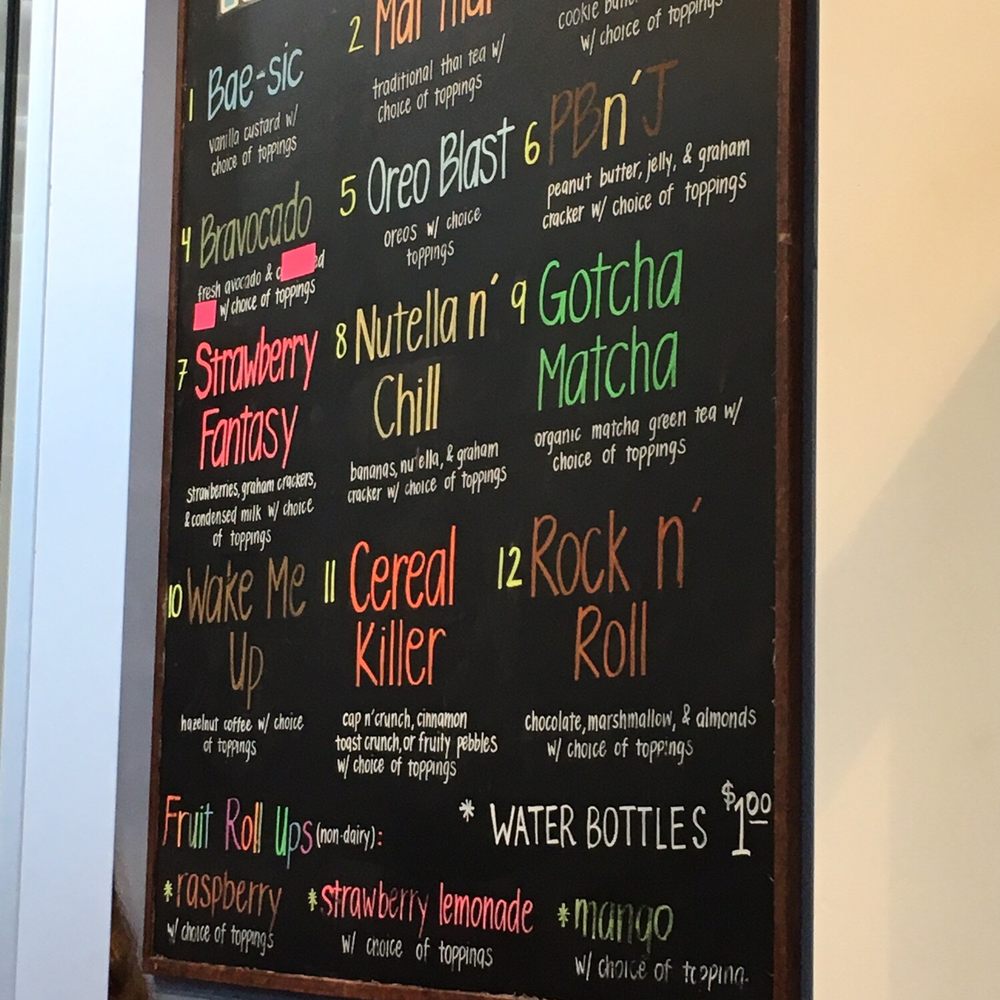 1 Bae-sic
vanilla custard w/
choice of toppings
2 Mai Thai
traditional thai tea w/
choice of toppings
cookie
w/ choice of toppings
4 Bravocado
fresh avocado &
w/ choice of toppings
5 Oreo Blast
oreos w/ choice
toppings
6 PB n' J
peanut butter, jelly, & graham
cracker w/ choice of toppings
7 Strawberry
Fantasy
strawberries, graham crackers,
& condensed milk w/ choice
of toppings
8 Nutella n'
Chill
bananas, nu ella, & graham
cracker w/ choice of toppings
9 Gotcha
Matcha
organic matcha green tea w/
choice of toppings
10 Wake Me
Up
hazelnut coffee w/ choice
of toppings
11 Cereal
Killer
cap n'crunch, cinnamon
toast crunch, or fruity pebbles
w/ choice of toppings
12 Rock n'
Roll
chocolate, marshmallow, & almonds
w/ choice of toppings
Fruit Roll Ups (non-dairy):
* WATER BOTTLES $1.00
*raspberry
w/ choice of toppings
*strawberry lemonade
w/ choice of toppings
*mango
w/ choice of topping